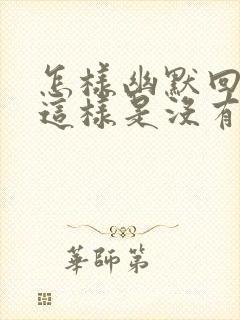 怎样幽默回
這樣是沒有
華師第